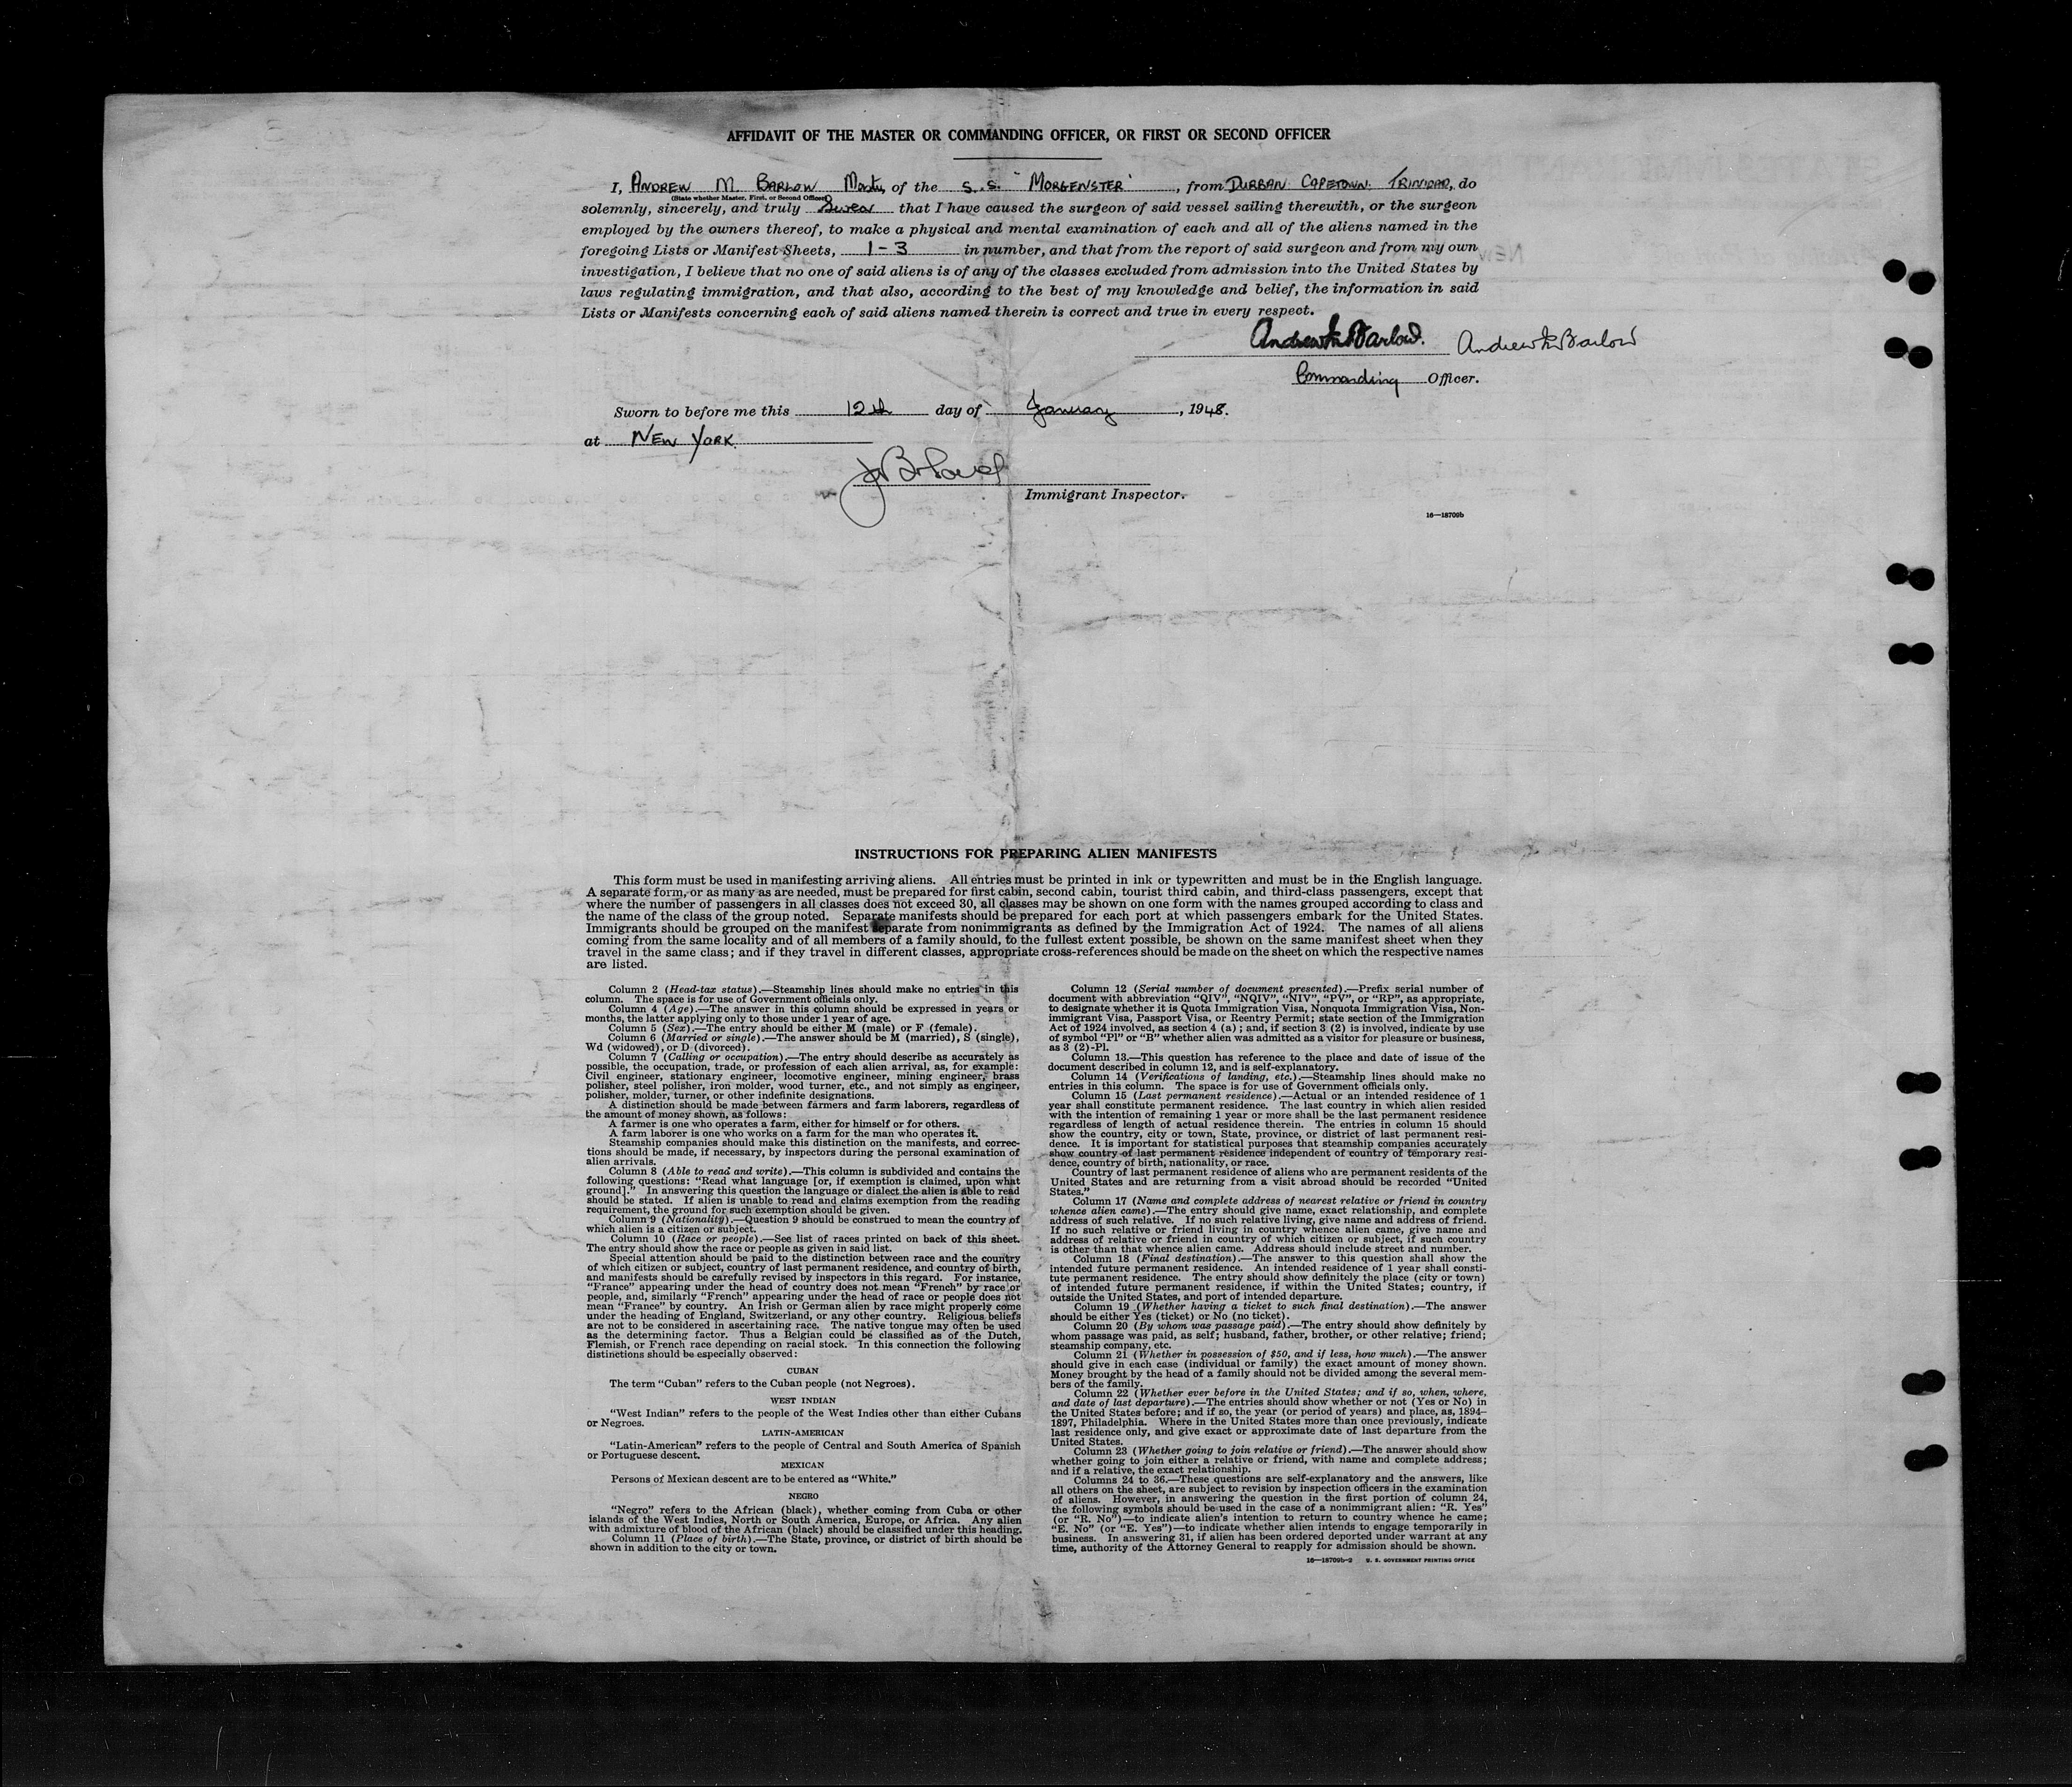 AFFIDAVIT OF THE MASTER OR COMMANDING OFFICER, OR FIRST OR SECOND OFFICER
I, ANDREW M. BARLOW Master, of the S.S. "MORGENSTER", from DURBAN CAPETOWN TRINIDAD, do
(State whether Master, First, or Second Officer)
solemnly, sincerely, and truly Swear that I have caused the surgeon of said vessel sailing therewith, or the surgeon
employed by the owners thereof, to make a physical and mental examination of each and all of the aliens named in the
foregoing Lists or Manifest Sheets, 1-3 in number, and that from the report of said surgeon and from my own
investigation, I believe that no one of said aliens is of any of the classes excluded from admission into the United States by
laws regulating immigration, and that also, according to the best of my knowledge and belief, the information in said
Lists or Manifests concerning each of said aliens named therein is correct and true in every respect.
Andrew M Barlow. Andrew M Barlow
Commanding Officer.
Sworn to before me this 12th day of January, 1948.
at NEW YORK.
Immigrant Inspector.
16—18709b
INSTRUCTIONS FOR PREPARING ALIEN MANIFESTS
This form must be used in manifesting arriving aliens. All entries must be printed in ink or typewritten and must be in the English language.
A separate form, or as many as are needed, must be prepared for first cabin, second cabin, tourist third cabin, and third-class passengers, except that
where the number of passengers in all classes does not exceed 30, all classes may be shown on one form with the names grouped according to class and
the name of the class of the group noted. Separate manifests should be prepared for each port at which passengers embark for the United States.
Immigrants should be grouped on the manifest separate from nonimmigrants as defined by the Immigration Act of 1924. The names of all aliens
coming from the same locality and of all members of a family should, to the fullest extent possible, be shown on the same manifest sheet when they
travel in the same class; and if they travel in different classes, appropriate cross-references should be made on the sheet on which the respective names
are listed.
Column 2 (Head-tax status).—Steamship lines should make no entries in this
column. The space is for use of Government officials only.
Column 4 (Age).—The answer in this column should be expressed in years or
months, the latter applying only to those under 1 year of age.
Column 5 (Sex).—The entry should be either M (male) or F (female).
Column 6 (Married or single).—The answer should be M (married), S (single),
Wd (widowed), or D (divorced).
Column 7 (Calling or occupation).—The entry should describe as accurately as
possible, the occupation, trade, or profession of each alien arrival, as, for example:
Civil engineer, stationary engineer, locomotive engineer, mining engineer, brass
polisher, steel polisher, iron molder, wood turner, etc., and not simply as engineer,
polisher, molder, turner, or other indefinite designations.
A distinction should be made between farmers and farm laborers, regardless of
the amount of money shown, as follows:
A farmer is one who operates a farm, either for himself or for others.
A farm laborer is one who works on a farm for the man who operates it.
Steamship companies should make this distinction on the manifests, and correc-
tions should be made, if necessary, by inspectors during the personal examination of
alien arrivals.
Column 8 (Able to read and write).—This column is subdivided and contains the
following questions: "Read what language [or, if exemption is claimed, upon what
ground]." In answering this question the language or dialect the alien is able to read
should be stated. If alien is unable to read and claims exemption from the reading
requirement, the ground for such exemption should be given.
Column 9 (Nationality).—Question 9 should be construed to mean the country of
which alien is a citizen or subject.
Column 10 (Race or people).—See list of races printed on back of this sheet.
The entry should show the race or people as given in said list.
Special attention should be paid to the distinction between race and the country
of which citizen or subject, country of last permanent residence, and country of birth,
and manifests should be carefully revised by inspectors in this regard. For instance,
"France" appearing under the head of country does not mean "French" by race or
people, and, similarly "French" appearing under the head of race or people does not
mean "France" by country. An Irish or German alien by race might properly come
under the heading of England, Switzerland, or any other country. Religious beliefs
are not to be considered in ascertaining race. The native tongue may often be used
as the determining factor. Thus a Belgian could be classified as of the Dutch,
Flemish, or French race depending on racial stock. In this connection the following
distinctions should be especially observed:
CUBAN
The term "Cuban" refers to the Cuban people (not Negroes).
WEST INDIAN
"West Indian" refers to the people of the West Indies other than either Cubans
or Negroes.
LATIN-AMERICAN
"Latin-American" refers to the people of Central and South America of Spanish
or Portuguese descent.
MEXICAN
Persons of Mexican descent are to be entered as "White."
NEGRO
"Negro" refers to the African (black), whether coming from Cuba or other
islands of the West Indies, North or South America, Europe, or Africa. Any alien
with admixture of blood of the African (black) should be classified under this heading.
Column 11 (Place of birth).—The State, province, or district of birth should be
shown in addition to the city or town.
Column 12 (Serial number of document presented).—Prefix serial number of
document with abbreviation "QIV", "NQIV", "NIV", "PV", or "RP", as appropriate,
to designate whether it is Quota Immigration Visa, Nonquota Immigration Visa, Non-
immigrant Visa, Passport Visa, or Reentry Permit; state section of the Immigration
Act of 1924 involved, as section 4 (a); and, if section 3 (2) is involved, indicate by use
of symbol "Pl" or "B" whether alien was admitted as a visitor for pleasure or business,
as 3 (2)-Pl.
Column 13.—This question has reference to the place and date of issue of the
document described in column 12, and is self-explanatory.
Column 14 (Verifications of landing, etc.).—Steamship lines should make no
entries in this column. The space is for use of Government officials only.
Column 15 (Last permanent residence).—Actual or an intended residence of 1
year shall constitute permanent residence. The last country in which alien resided
with the intention of remaining 1 year or more shall be the last permanent residence
regardless of length of actual residence therein. The entries in column 15 should
show the country, city or town, State, province, or district of last permanent resi-
dence. It is important for statistical purposes that steamship companies accurately
show country of last permanent residence independent of country of temporary resi-
dence, country of birth, nationality, or race.
Country of last permanent residence of aliens who are permanent residents of the
United States and are returning from a visit abroad should be recorded "United
States."
Column 17 (Name and complete address of nearest relative or friend in country
whence alien came).—The entry should give name, exact relationship, and complete
address of such relative. If no such relative living, give name and address of friend.
If no such relative or friend living in country whence alien came, give name and
address of relative or friend in country of which citizen or subject, if such country
is other than that whence alien came. Address should include street and number.
Column 18 (Final destination).—The answer to this question shall show the
intended future permanent residence. An intended residence of 1 year shall consti-
tute permanent residence. The entry should show definitely the place (city or town)
of intended future permanent residence, if within the United States; country, if
outside the United States, and port of intended departure.
Column 19 (Whether having a ticket to such final destination).—The answer
should be either Yes (ticket) or No (no ticket).
Column 20 (By whom was passage paid).—The entry should show definitely by
whom passage was paid, as self; husband, father, brother, or other relative; friend;
steamship company, etc.
Column 21 (Whether in possession of $50, and if less, how much).—The answer
should give in each case (individual or family) the exact amount of money shown.
Money brought by the head of a family should not be divided among the several mem-
bers of the family.
Column 22 (Whether ever before in the United States; and if so, when, where,
and date of last departure).—The entries should show whether or not (Yes or No) in
the United States before; and if so, the year (or period of years) and place, as, 1894–
1897, Philadelphia. Where in the United States more than once previously, indicate
last residence only, and give exact or approximate date of last departure from the
United States.
Column 23 (Whether going to join relative or friend).—The answer should show
whether going to join either a relative or friend, with name and complete address;
and if a relative, the exact relationship.
Columns 24 to 36.—These questions are self-explanatory and the answers, like
all others on the sheet, are subject to revision by inspection officers in the examination
of aliens. However, in answering the question in the first portion of column 24,
the following symbols should be used in the case of a nonimmigrant alien: "R. Yes"
(or "R. No")—to indicate alien's intention to return to country whence he came;
"E. No" (or "E. Yes")—to indicate whether alien intends to engage temporarily in
business. In answering 31, if alien has been ordered deported under warrant at any
time, authority of the Attorney General to reapply for admission should be shown.
16—18709b-2 U. S. GOVERNMENT PRINTING OFFICE